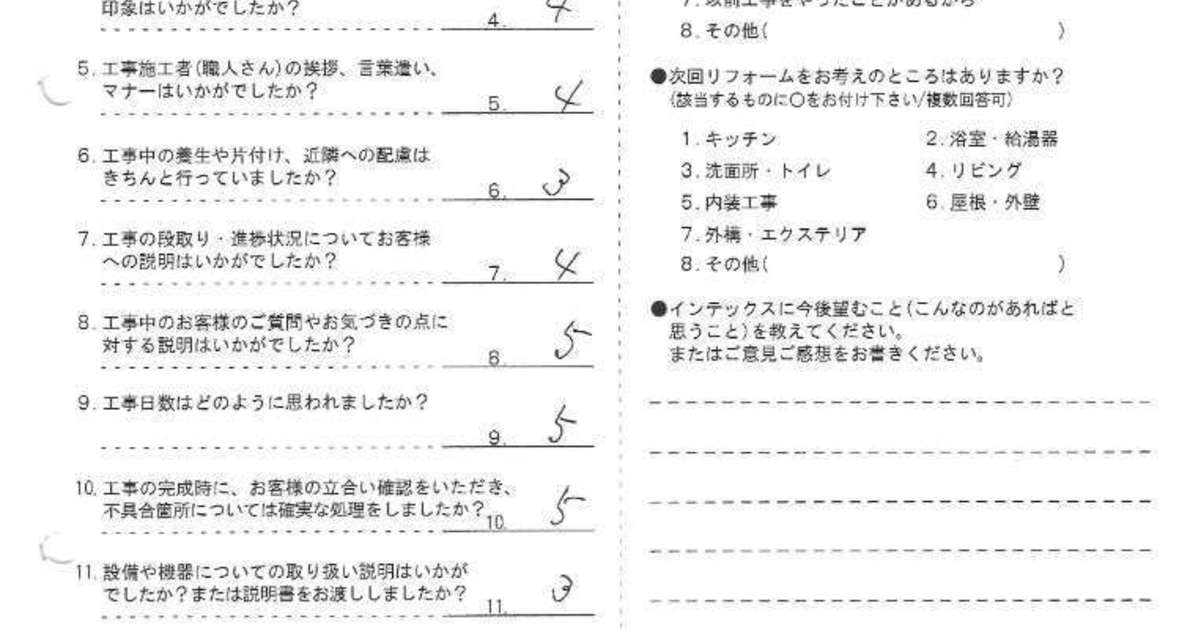 印象はいかがでしたか？
4. 4
5. 工事施工者(職人さん)の挨拶、言葉遣い、
マナーはいかがでしたか？
5. 4
6. 工事中の養生や片付け、近隣への配慮は
きちんと行っていましたか？
6. 3
7. 工事の段取り・進捗状況についてお客様
への説明はいかがでしたか？
7. 4
8. 工事中のお客様のご質問やお気づきの点に
対する説明はいかがでしたか？
8. 5
9. 工事日数はどのように思われましたか？
9. 5
10. 工事の完成時に、お客様の立合い確認をいただき、
不具合箇所については確実な処理をしましたか？
10. 5
11. 設備や機器についての取り扱い説明はいかが
でしたか？または説明書をお渡ししましたか？
11. 3
7. 以前工事をやったことがあるから
8. その他( )
●次回リフォームをお考えのところはありますか？
(該当するものに○をお付け下さい/複数回答可)
1. キッチン 2. 浴室・給湯器
3. 洗面所・トイレ 4. リビング
5. 内装工事 6. 屋根・外壁
7. 外構・エクステリア
8. その他( )
●インテックスに今後望むこと(こんなのがあればと
思うこと)を教えてください。
またはご意見ご感想をお書きください。